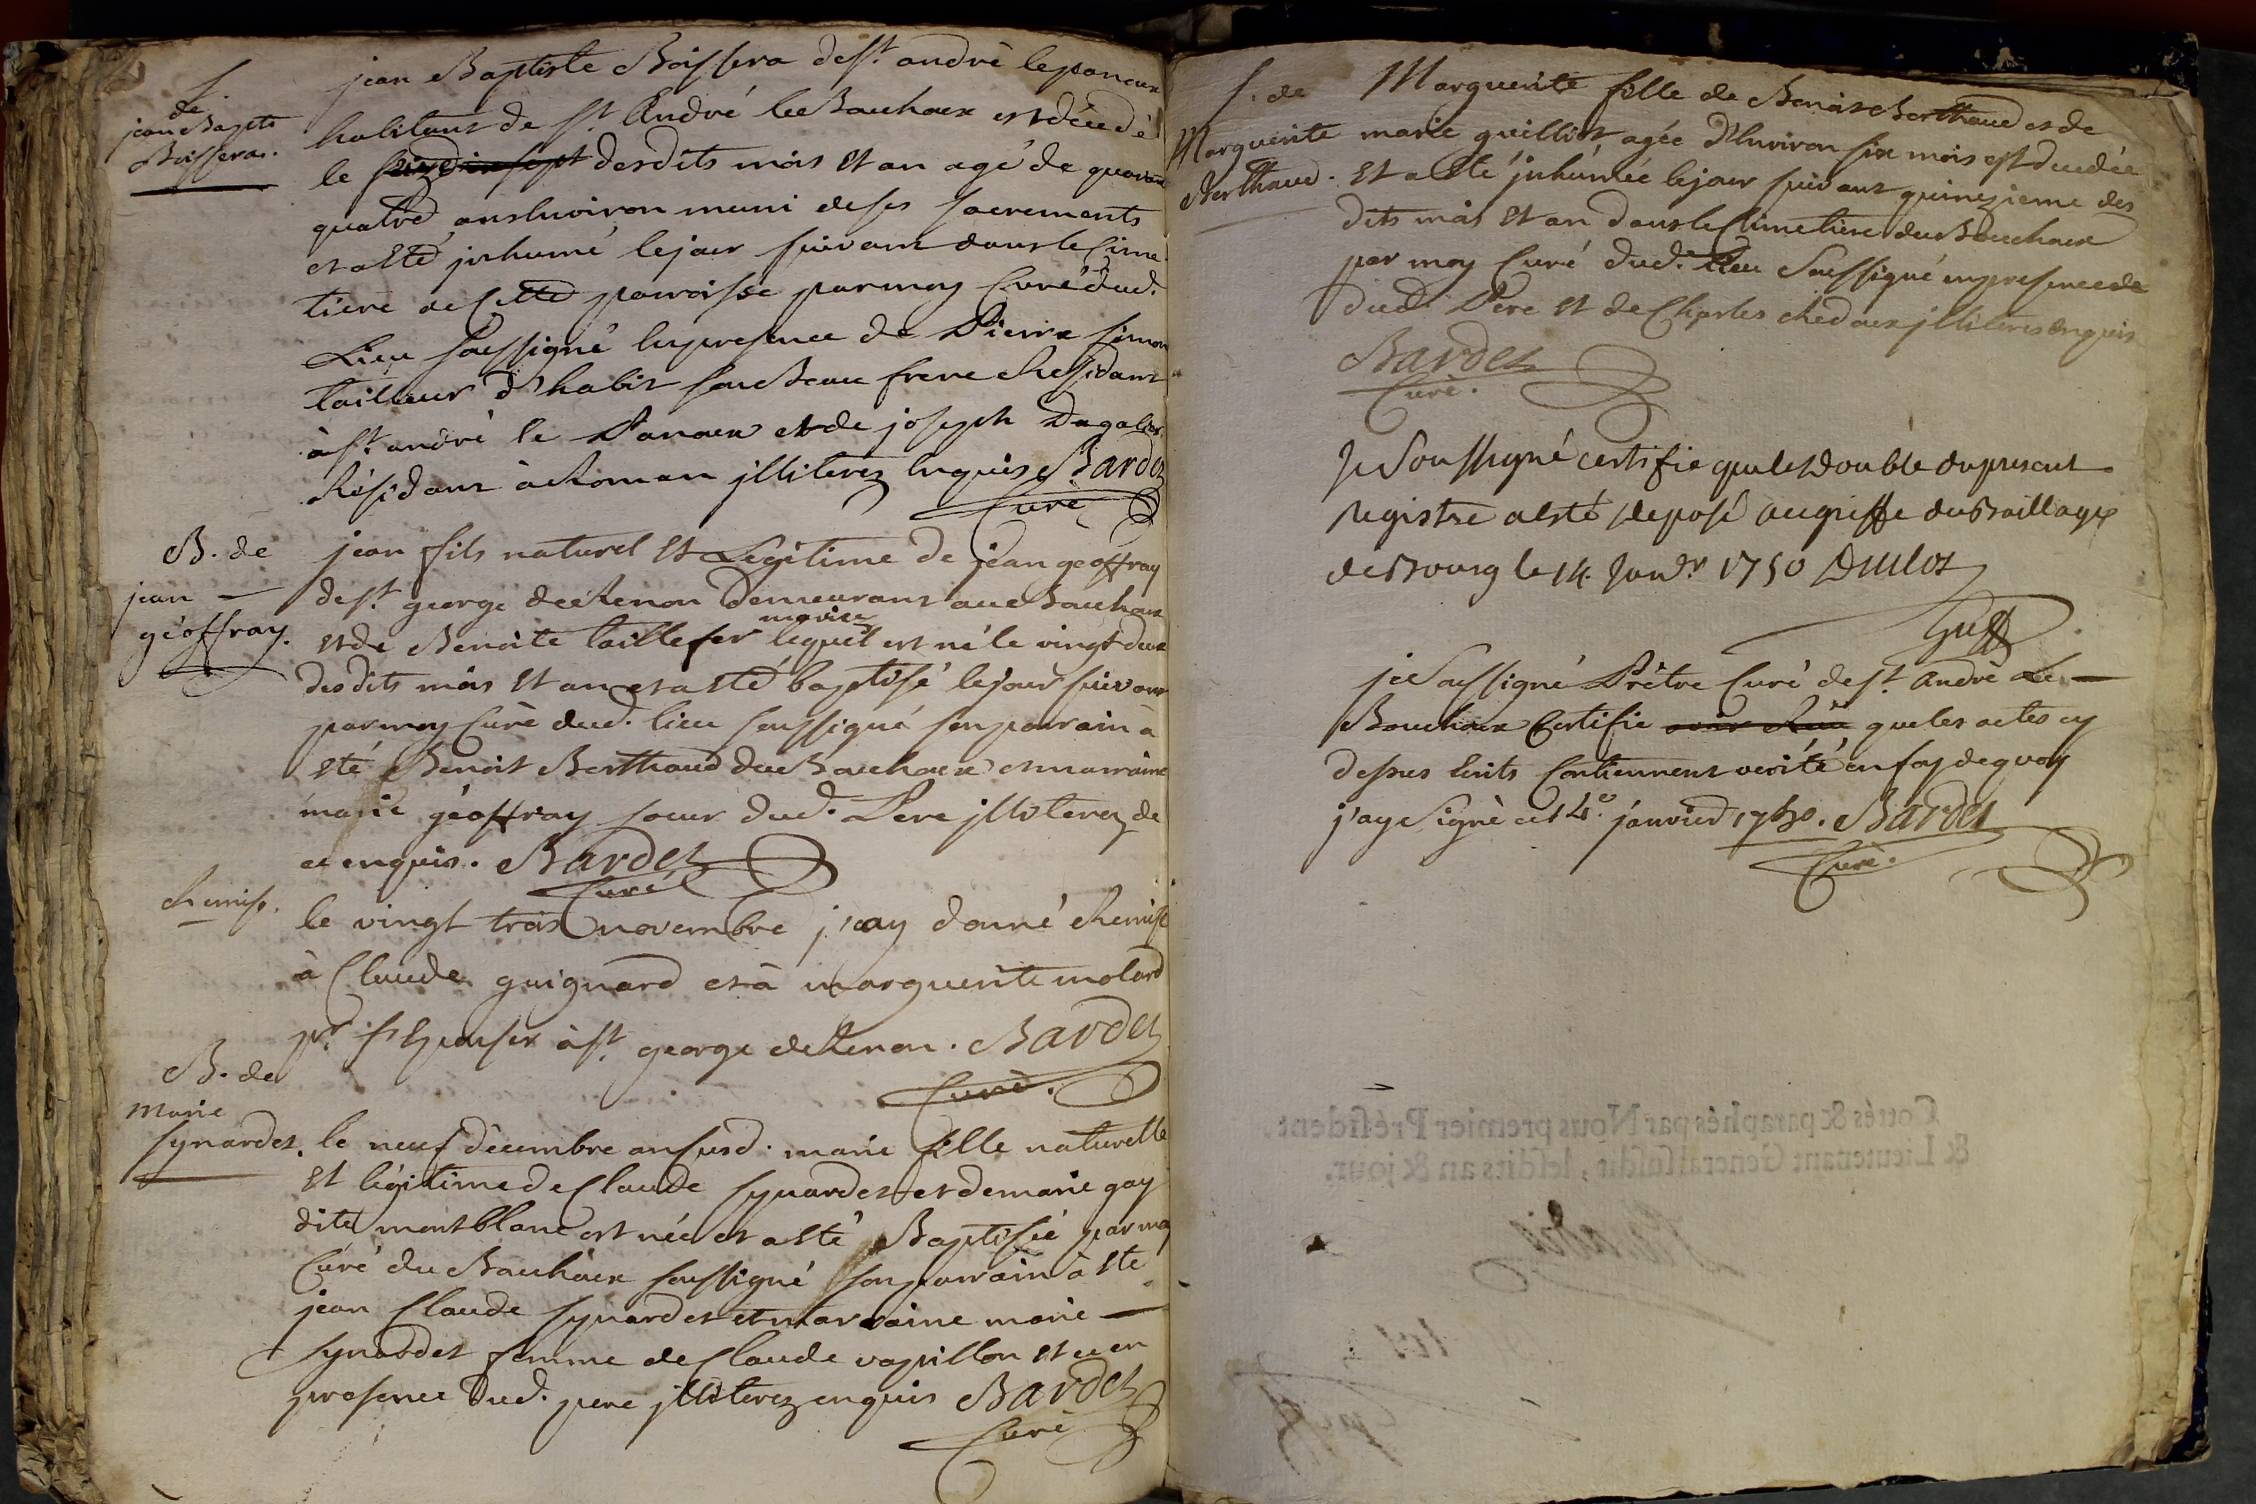 f.
de
jean Bapte
Boissera.
jean Baptiste Boissera de st. andrè le panoux
habitant de st. André le Bouchoux est décedé
le desdits mois et an agé de quarante
quatre ans environ muni de ses sacrements
et a esté inhumé le jour suivant dans le cime
tiere de cette paroisse par moy Curé dud.
Lieu soussigné en presence de Pierre simon
tailleur d'habit son Beau frere Residant
à st. andrè le Panoux et de joseph Dagalier
Résidant à Roman illiterez enquis Bardet
Curé
B. de
jean —
géoffray.
jean fils naturel et Legitime de jean géoffray
de st. george de Renon Demeurant au Bouchoux
mariez
et de Benoite taillefer lequel est né le vingt deux
desdits mois et an et a esté baptisé le jour suivant
par moy Curé dud. lieu soussigné son parrain à
esté Benoit Berthaud du Bouchoux et marraine
marie géoffray soeur dud. Pere illiterez de
ce enquis. Bardet
Curé
Remise.
le vingt trois novembre j'ay donné Remise
à Claude guignard et à marguerite molard
pr. s'Epouser à st. george de Renon. Bardet
Curé.
B. de
Marie
synardet.
le neuf décembre an susd. marie fille naturelle
et légitime de Claude synardet et de marie gay
dite montblanc est née et a esté Baptisée par moy
Curé du Bouchoux soussigné son parrain à esté
jean Claude synardet et marraine marie —
synardet femme de Claude vapillon et ce en
presence dud. pere illiterez enquis Bardet
Curé
f. de
Marguerite
Berthaud.
Marguerite fille de Benoit Berthaud et de
marie guillot agée d'Environ six mois est decedée
et a esté inhumée le jour suivant quinzieme des
dits mois et an dans le Cimetiere du Bouchoux
par moy Curé dud. Lieu Soussigné en presence de
dud. Pere et de Charles chedoux illiteres enquis
Bardet
Curé.
Je Soussigné certifie que le double du present
Registre a esté deposé au greffe du Baillage
de Bourg le 14. Janvr. 1750
Greff
je Soussigné Prêtre Curé de st. André Le —
Bouchoux Certifie que les actes cy
dessus Ecrits Contiennent verité en foy de quoy
j'ay Signé ce 14.e janvier 1750. Bardet
Curé.
Cottés & paraphés par Nous premier Président
& Lieutenant General susdit, lesdits an & jour.